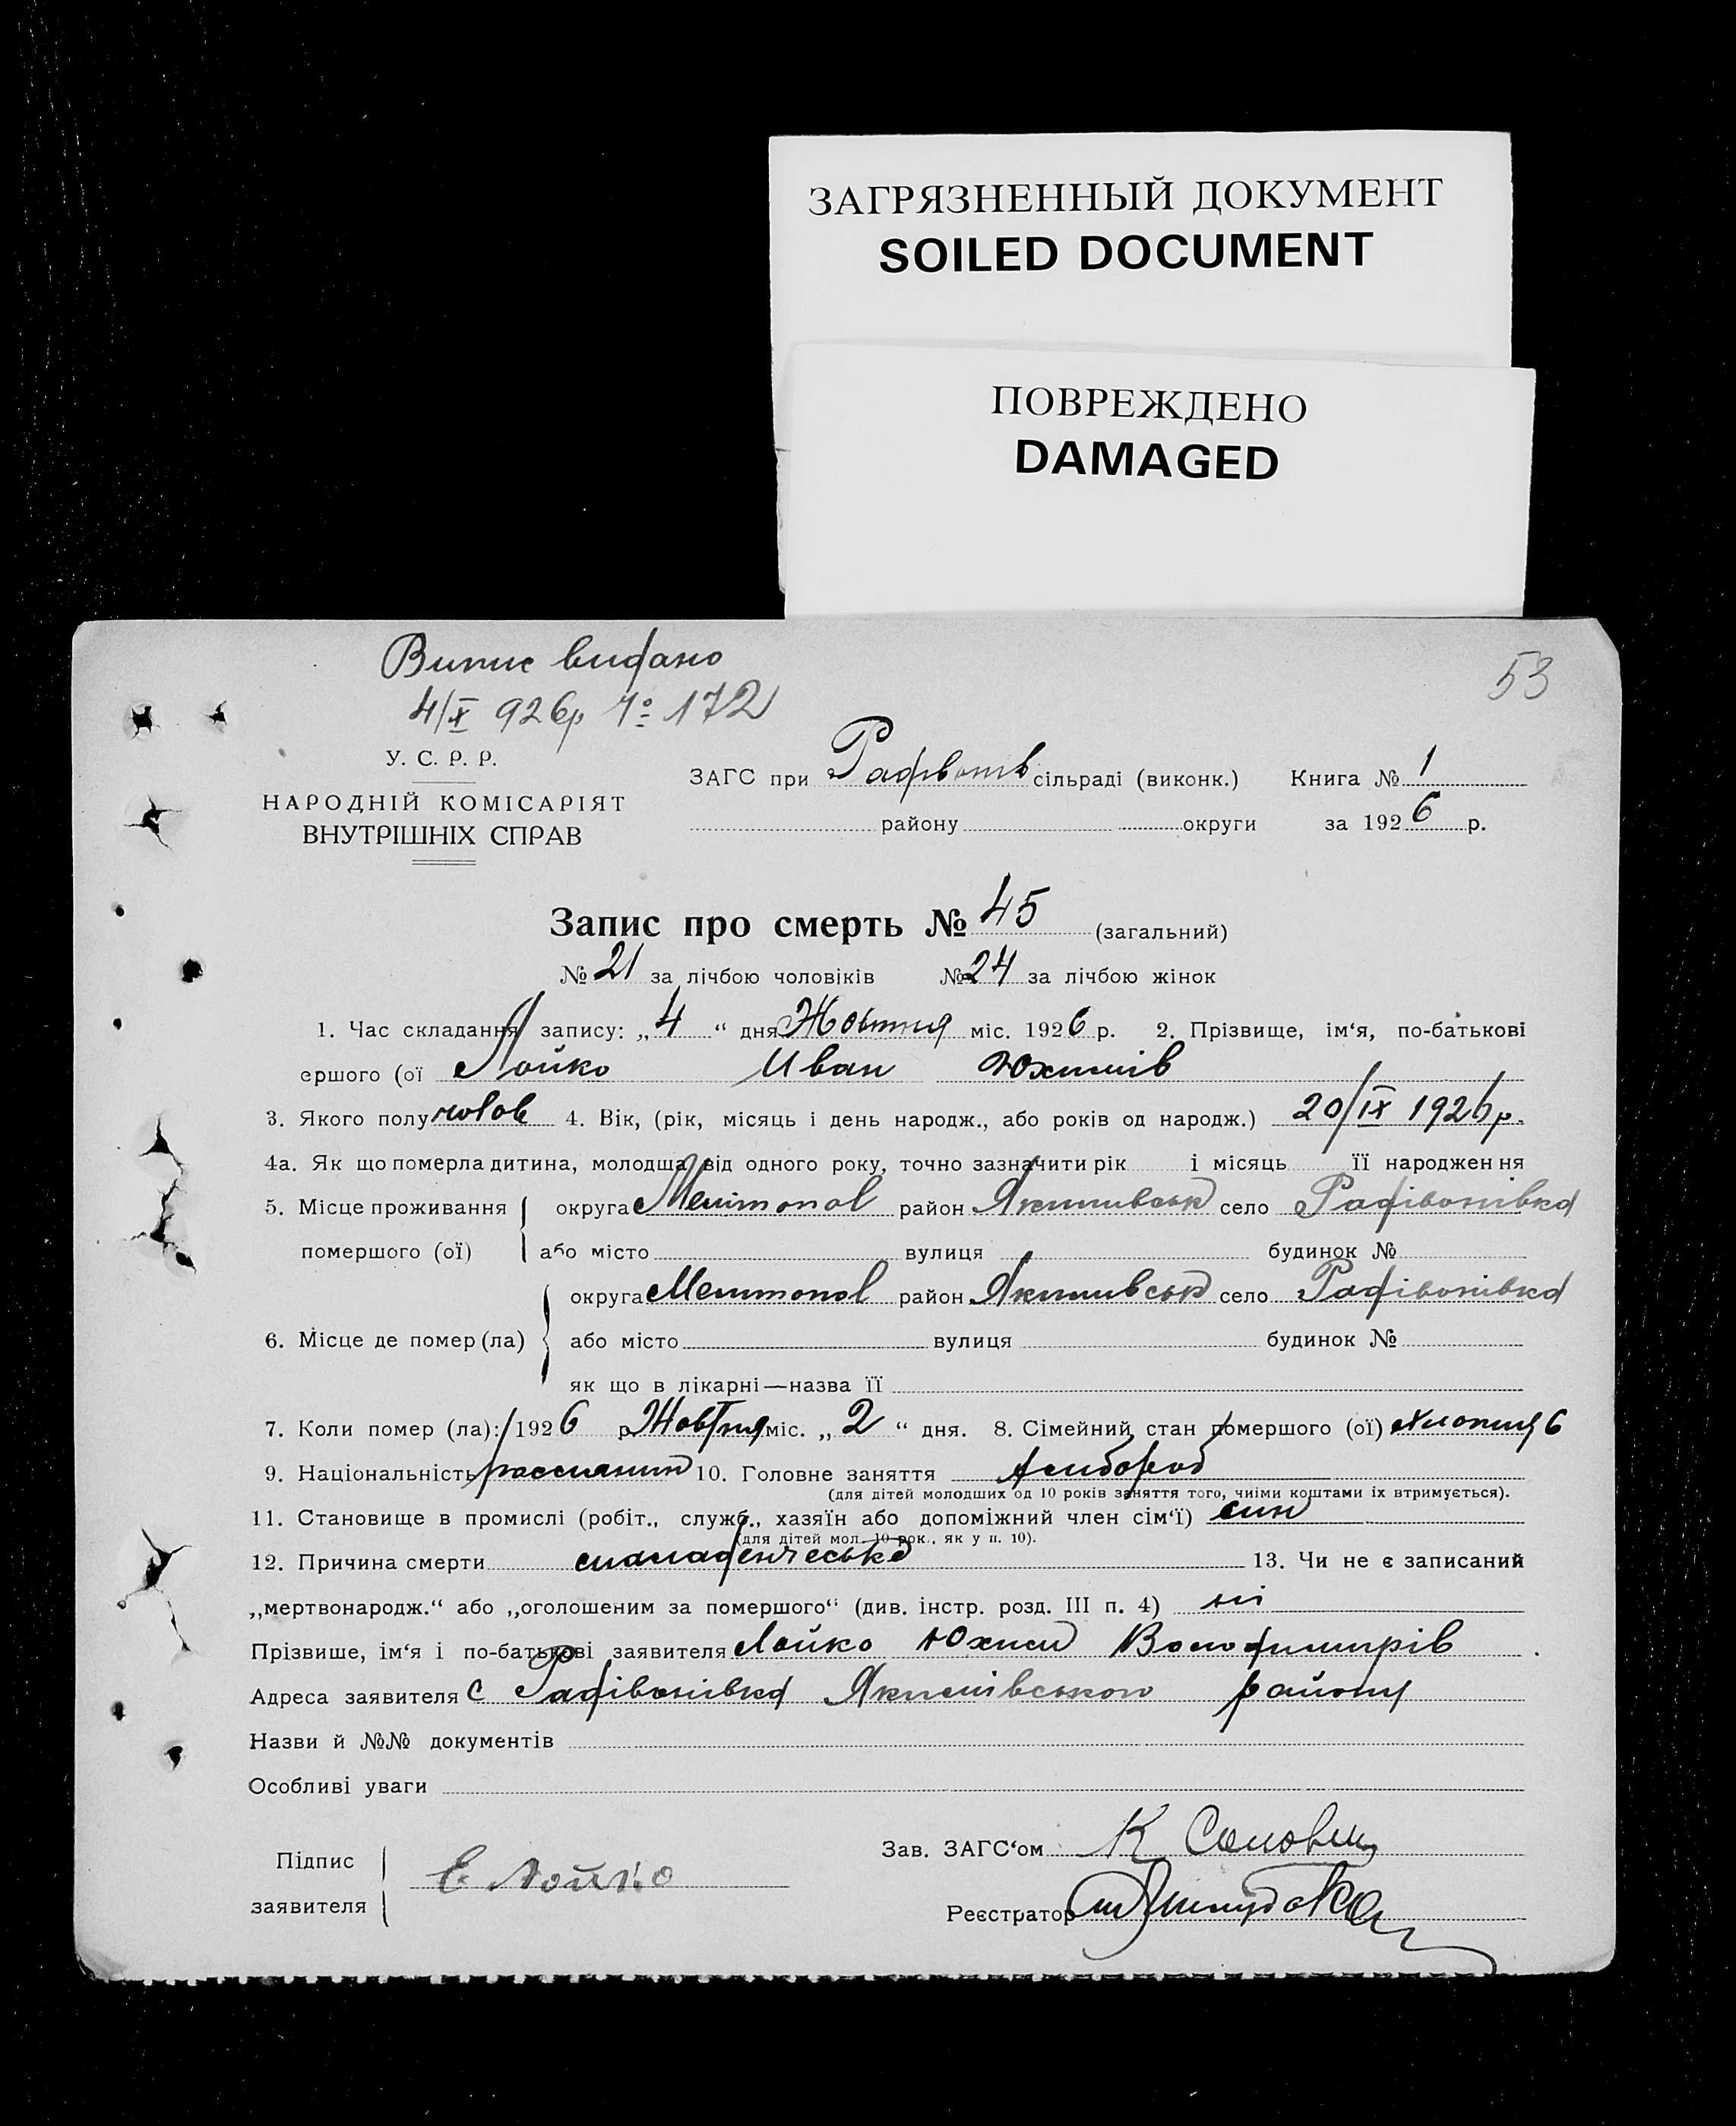 ЗАГРЯЗНЕННЫЙ ДОКУМЕНТ
SOILED DOCUMENT
ПОВРЕЖДЕНО
DAMAGED
Випис видано
53
4/X 926р № 172
У. С. Р. Р.
НАРОДНІЙ КОМІСАРІЯТ
ВНУТРІШНІХ СПРАВ
ЗАГС при Радівонів сільраді (виконк.) Книга № 1
району округи за 1926 р.
Запис про смерть № 45 (загальний)
№ 21 за лічбою чоловіків № 24 за лічбою жінок
1. Час складання запису: „4“ дня Жовтня міс. 1926 р. 2. Прізвище, ім‘я, по-батькові
ершого (ої Лойко Иван Юхимів
3. Якого полу чолов 4. Вік, (рік, місяць і день народж., або років од народж.) 20/IX 1926 р.
4а. Як що померла дитина, молодща від одного року, точно зазначити рік і місяць її народження
5. Місце проживання округа Мелітопол район Якимивськ село Радівонівка
помершого (ої) або місто вулиця будинок №
округа Мелитопол район Якимивськ село Радівонівка
6. Місце де помер (ла) або місто вулиця будинок №
як що в лікарні—назва її
7. Коли помер (ла): 1926 р Жовтня міс. „2“ дня. 8. Сімейний стан помершого (ої)
9. Національність россиянин 10. Головне заняття хлибороб
(для дітей молодших од 10 років заняття того, чиіми коштами іх втримується).
11. Становище в промислі (робіт., служб., хазяїн або допоміжний член сім‘ї) син
(для дітей мол. 10 рок., як у п. 10).
12. Причина смерти 13. Чи не є записаний
„мертвонародж.“ або „оголошеним за помершого“ (див. інстр. розд. III п. 4) ні
Прізвише, ім‘я і по-батькові заявителя Лойко Юхим Володимирів
Адреса заявителя С Радівонівка Якимівського району
Назви й №№ документів
Особливі уваги
Підпис
заявителя Е Лойко
Зав. ЗАГС‘ом К
Реєстратор